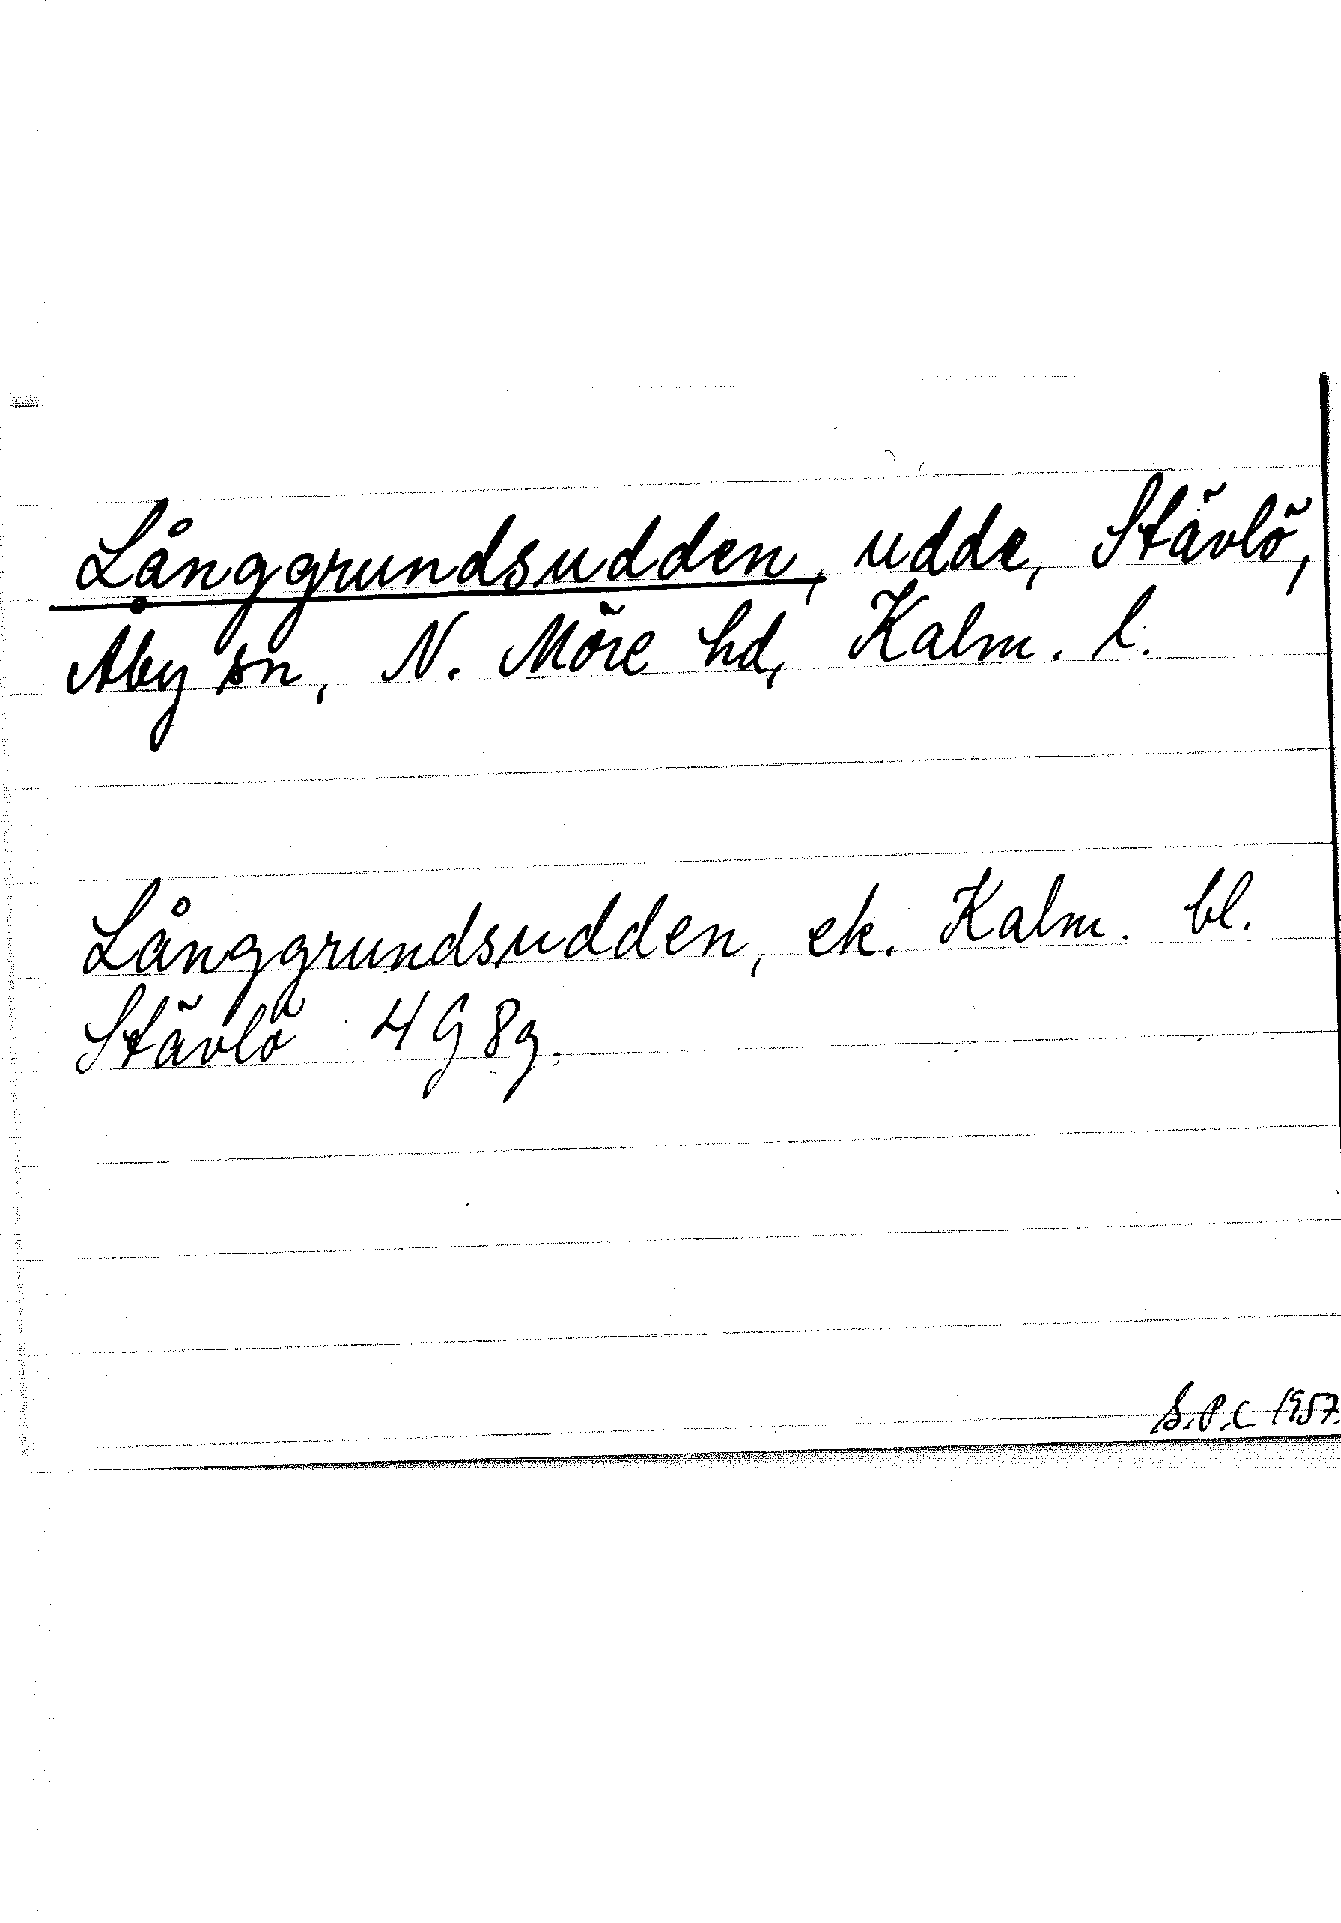 Långgrundsudden, udde, Stävlö,
Åby sn, N. Möre hd, Kalm. l.
Långgrundsudden, ek. Kalm. bl.
Stävlö 4 G 8g.
S.P.C 1957.